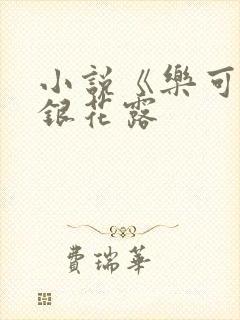 小説《樂可
銀花露
費瑞華